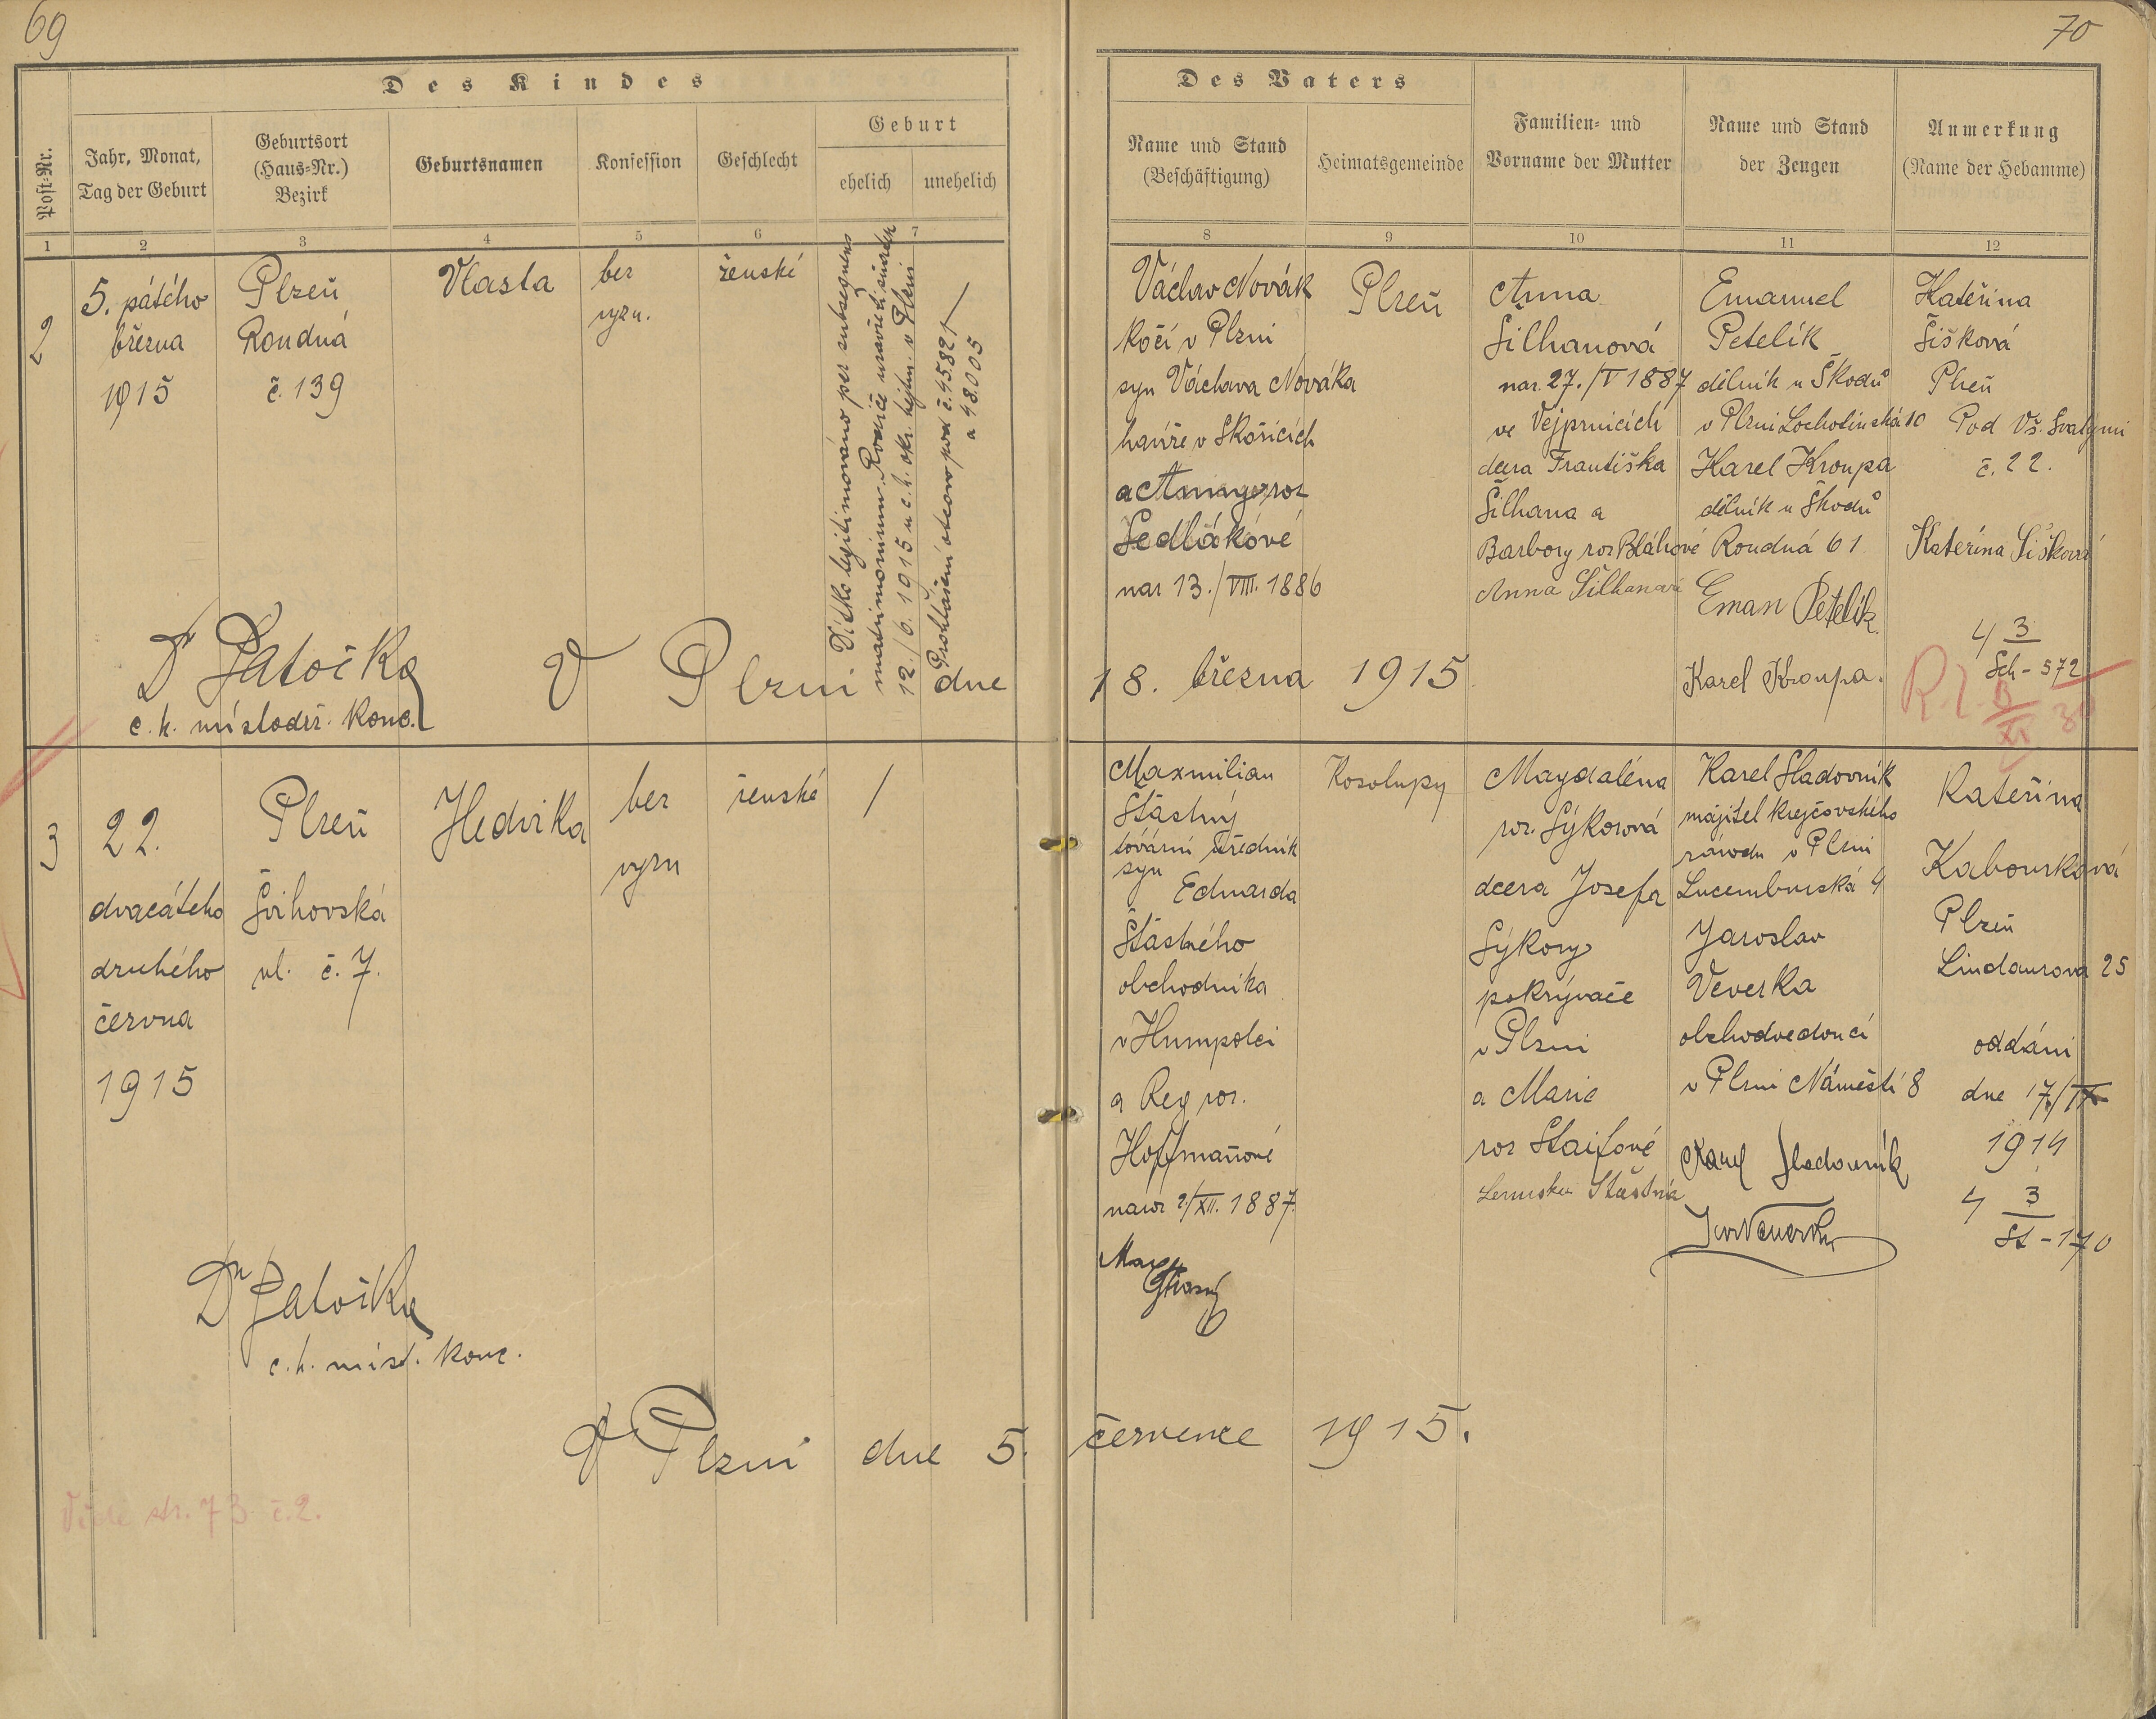 69
70
Des Kindes
Post-Nr.
Jahr, Monat,
Tag der Geburt
Geburtsort
(Haus-Nr.)
Bezirk
Geburtsnamen
Konfession
Geschlecht
Geburt
ehelich
unehelich
Des Vaters
Name und Stand
(Beschäftigung)
Heimatsgemeinde
Familien- und
Vorname der Mutter
Name und Stand
der Zeugen
Anmerkung
(Name der Hebamme)
1 2 3 4 5 6 7 8 9 10 11 12
2
5. pátého
března
1915
Plzeň
Roudná
č. 139
Vlasta
bez
vyzn.
ženské
Dítko legitimováno per subsequens
matrimonium. Rodiče uzavřeli sňatek
12./6. 1915 u c. k. okr. hejtm. v Plzni
Prohlášení otcovo pod č. 45821
a 48005
Václav Novák
kočí v Plzni
syn Václava Nováka
havíře v Skořicích
a Anny roz
Sedlákové
nar 13./VIII. 1886
Plzeň
Anna
Šilhanová
nar. 27./V 1887
ve Vejprnicích
dcera Františka
Šilhana a
Barbory roz Bláhové
Anna Šilhanová
Emanuel
Petelík
dělník u Škodů
v Plzni Lochotínská 10
Karel Kroupa
dělník u Škodů
Roudná 61
Eman Petelík.
Karel Kroupa.
Kateřina
Šišková
Plzeň
Pod Vš. Svatými
č. 22.
Kateřina Šišková
4 3
Sch - 572
Dr Patočka
c. k. místodrž. konc.
V Plzni dne 18. března 1915
3
22.
dvacátého
druhého
června
1915
Plzeň
Švihovská
ul. č. 7.
Hedvika
bez
vyzn
ženské
/
Maxmilian
Šťastný
tovární úředník
syn
Eduarda
Šťastného
obchodníka
v Humpolci
a Reg roz.
Hoffmanové
naroz 2/XII. 1887.
Kosolupy
Magdaléna
roz. Sýkorová
dcera Josefa
Sýkory
pokrývače
v Plzni
a Marie
roz Staifové
Karel Sladovník
májitel krejčovského
závodu v Plzni
Lucemburská 4
Jaroslav
Veverka
obchodvedoucí
v Plzni Náměstí 8
Karel Sladovník
Kateřina
Kabourková
Plzeň
Lindaurova 25
oddáni
dne 17/IX
1914
4 3
St - 170
Dr Patočka
c. k. míst. konc.
V Plzni dne 5. července 1915.
Vide str. 73 č. 2.